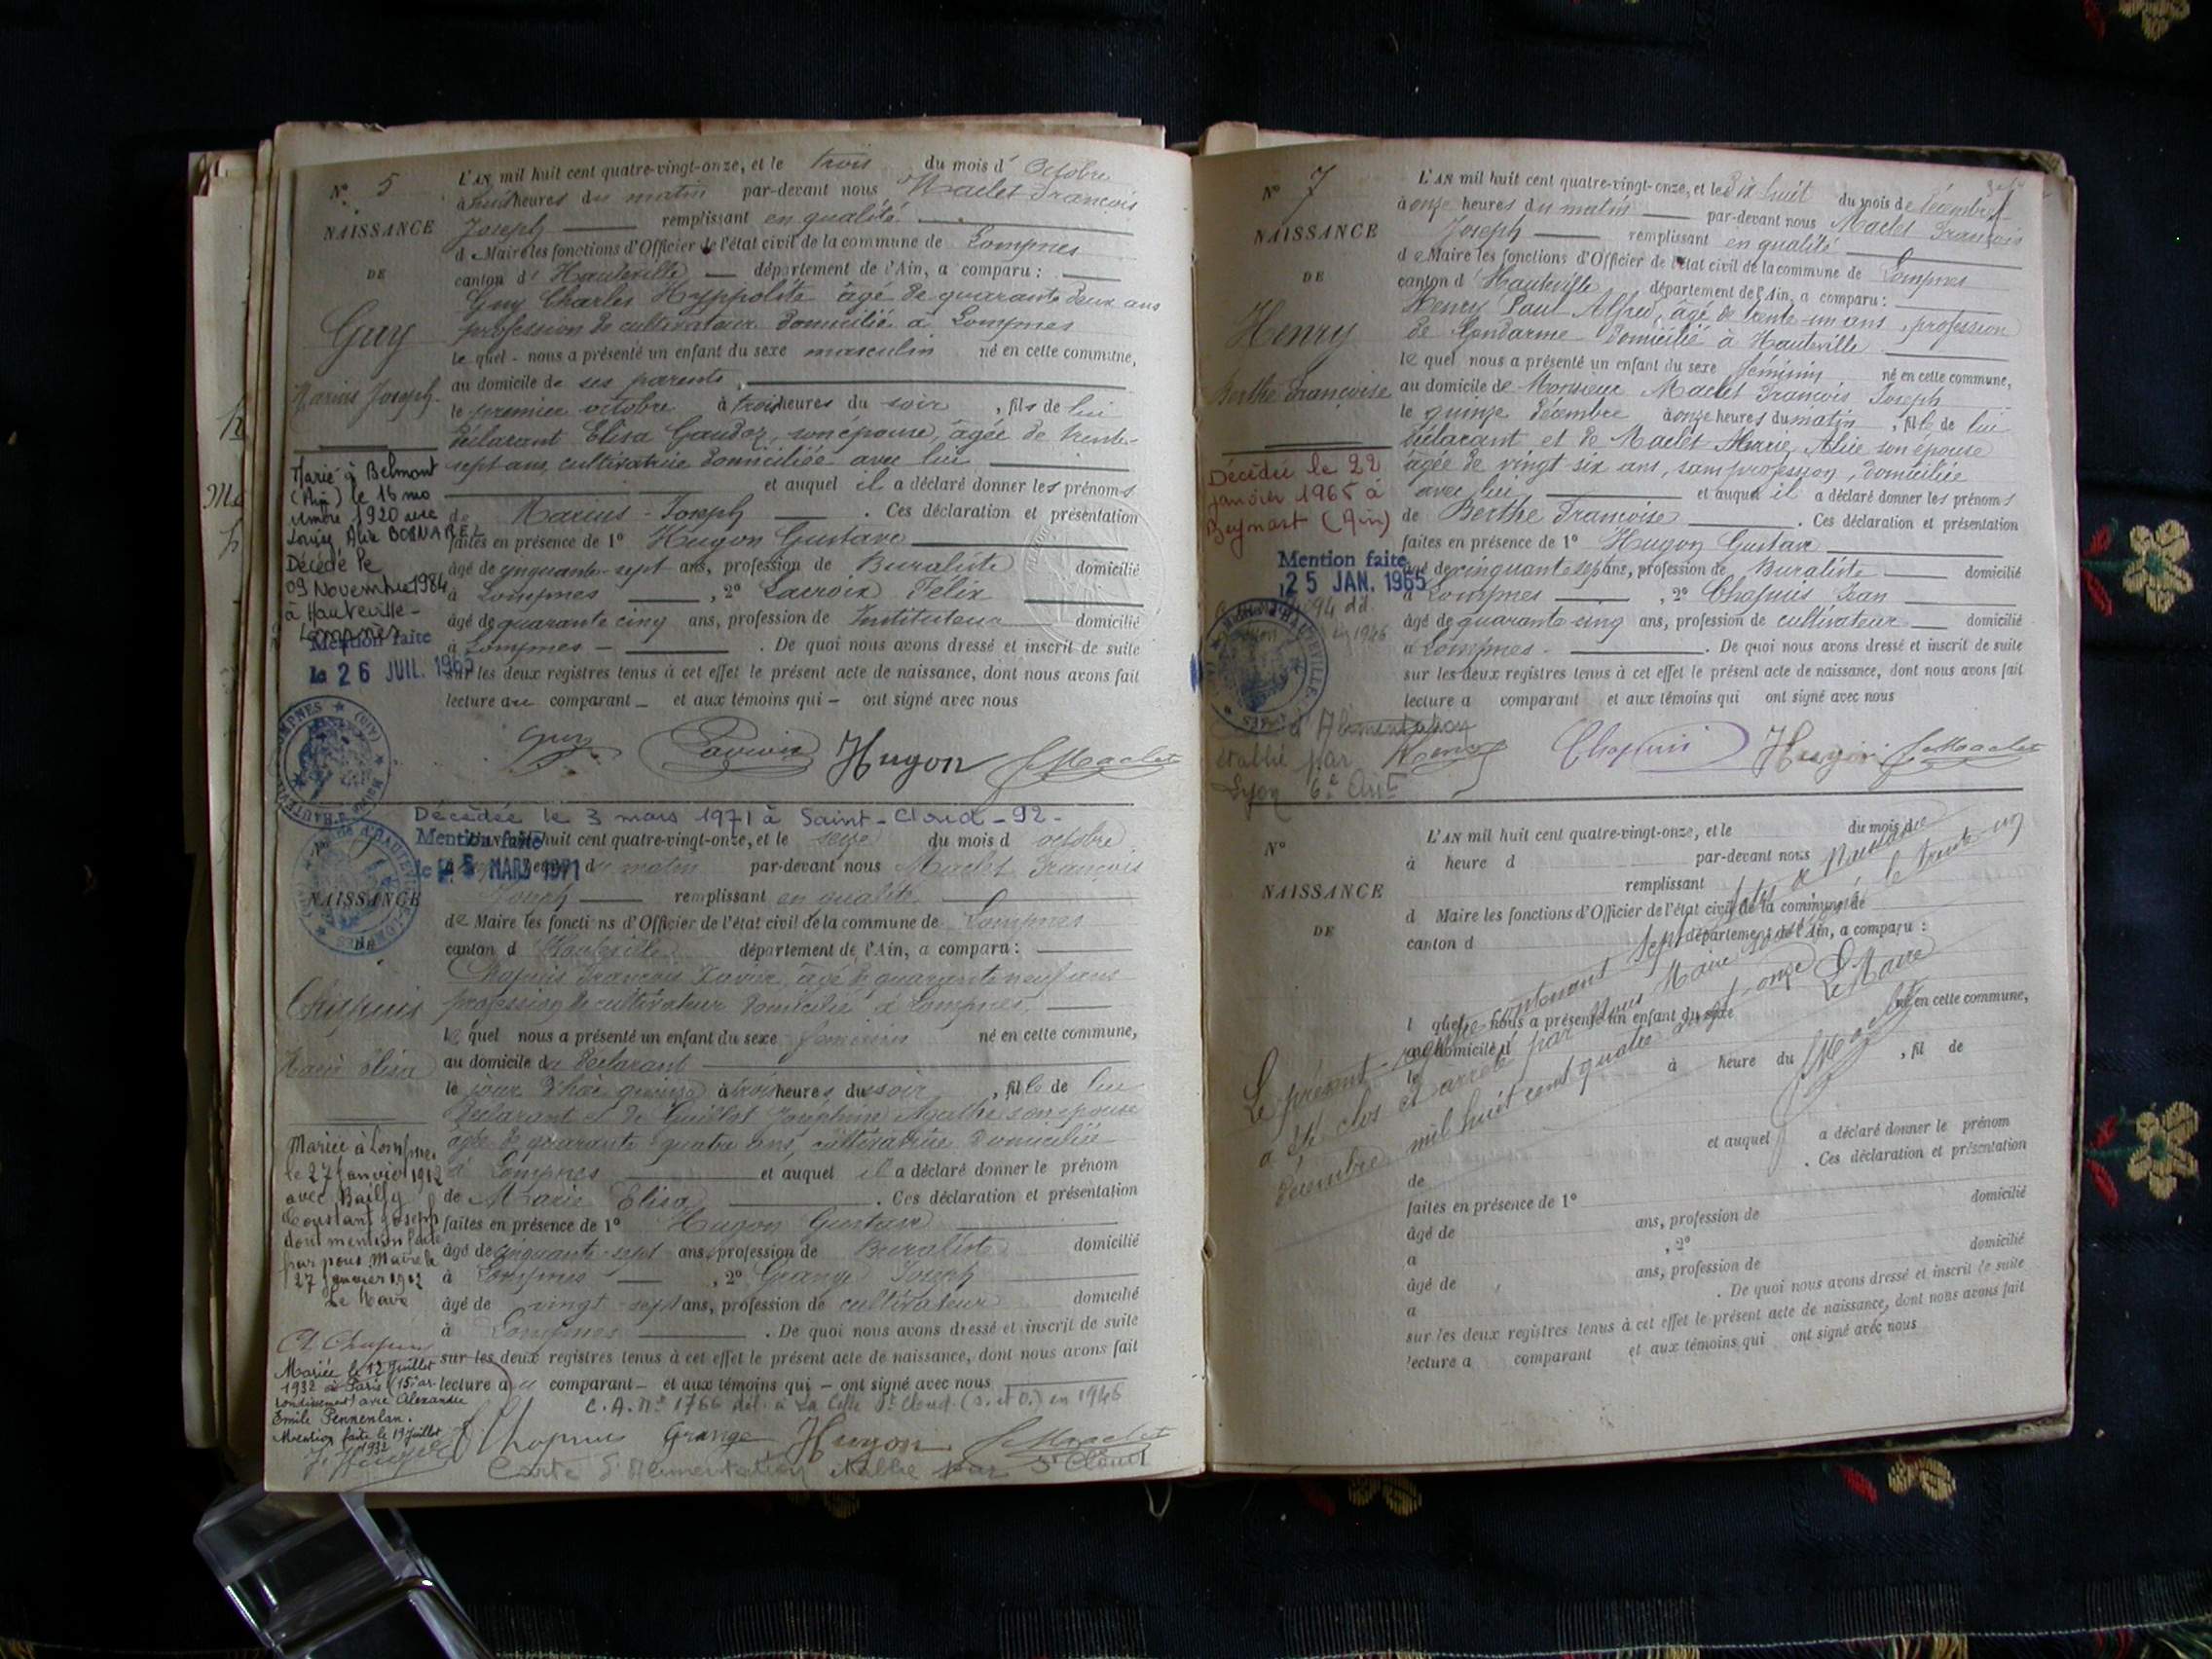 N° 5
NAISSANCE
DE
Guy
Marius Joseph
Marié à Belmont
(Ain) le 16 no
vembre 1920 avec
Louise Alice
Décédé le
09 Novembre 1984
à Hauteville-
Lompnes
Mention faite
le 26 JUIL.
L'AN mil huit cent quatre-vingt-onze, et le trois du mois d' Octobre
à huit heures du matin par-devant nous Maclet François
Joseph remplissant en qualité
de Maire les fonctions d'Officier de l'état civil de la commune de Lompnes
canton d' Hauteville département de l'Ain, a comparu :
Guy Charles Hyppolite âgé de quarante deux ans
profession de cultivateur domicilié à Lompnes
le quel - nous a présenté un enfant du sexe masculin né en cette commune,
au domicile de ses parents,
le premier octobre à trois heures du soir, fils de lui
déclarant Elisa Gaudoz, son épouse, âgée de trente-
sept ans cultivatrice domiciliée avec lui
et auquel il a déclaré donner les prénoms
de Marius - Joseph. Ces déclaration et présentation
faites en présence de 1° Hugon Gustave
âgé de cinquante-sept ans, profession de Buraliste domicilié
à Lompnes, 2° Lacroix Félix
âgé de quarante cinq ans, profession de Instituteur domicilié
à Lompnes -. De quoi nous avons dressé et inscrit de suite
sur les deux registres tenus à cet effet le présent acte de naissance, dont nous avons fait
lecture au comparant - et aux témoins qui - ont signé avec nous
Guy Lacroix Hugon J Maclet
Décédée le 3 mars 1971 à Saint-Cloud - 92 -
Mention faite
le - 5 MARS 1971
NAISSANCE
DE
Chapuis
Marie Elisa
Mariée à Lompnes
le 27 Janvier 1912
avec Bailly
Constant Joseph
dont mention faite
par nous Maire le
27 Janvier 1912
Le Maire
Cl. Chapuis
Mariée le 12 Juillet
1932 à Paris (15e ar-
rondissement) avec Alexandre
Emile Pennenlan.
Mention faite le 19 Juillet
1932
huit cent quatre-vingt-onze, et le seize du mois d octobre
du matin par-devant nous Maclet François
Joseph remplissant en qualité
de Maire les fonctions d'Officier de l'état civil de la commune de Lompnes
canton d' Hauteville département de l'Ain, a comparu :
Chapuis François Xavier, âgé de quarante neuf ans
profession de cultivateur domicilié à Lompnes,
le quel nous a présenté un enfant du sexe féminin né en cette commune,
au domicile du déclarant
le jour d'hier quinze à trois heures du soir, fille de lui
déclarant et de Guillot Joséphine Marthe son épouse
âgée de quarante-quatre ans, cultivatrice domiciliée
à Lompnes et auquel il a déclaré donner le prénom
de Marie Elisa. Ces déclaration et présentation
faites en présence de 1° Hugon Gustave
âgé de cinquante-sept ans, profession de Buraliste domicilié
à Lompnes, 2° Grange Joseph
âgé de vingt-sept ans, profession de cultivateur domicilié
à Lompnes. De quoi nous avons dressé et inscrit de suite
sur les deux registres tenus à cet effet le présent acte de naissance, dont nous avons fait
lecture au comparant - et aux témoins qui - ont signé avec nous
C.A. N° 1766 dél. à La Celle St Cloud (S. et O.) en 1946
Chapuis Grange Hugon J Maclet
Carte d'Alimentation établie par St Cloud
N° 7
NAISSANCE
DE
Henry
Berthe Françoise
Décédée le 22
janvier 1965 à
Beymont (Ain)
Mention faite
25 JAN. 1965
d'Alimentation
établie par
Lyon 6e Arrt
L'AN mil huit cent quatre-vingt-onze, et le dix huit du mois de décembre
à onze heures du matin par-devant nous Maclet François
Joseph remplissant en qualité
de Maire les fonctions d'Officier de l'état civil de la commune de Lompnes
canton d' Hauteville département de l'Ain, a comparu :
Henry Paul Alfred, âgé de trente-un ans, profession
de Gendarme domicilié à Hauteville
le quel nous a présenté un enfant du sexe féminin né en cette commune,
au domicile de Monsieur Maclet François Joseph
le quinze décembre à onze heures du matin, fille de lui
déclarant et de Maclet Marie Alice son épouse
âgée de vingt-six ans, sans profession, domiciliée
avec lui et auquel il a déclaré donner les prénoms
de Berthe Françoise. Ces déclaration et présentation
faites en présence de 1° Hugon Gustave
âgé de cinquante sept ans, profession de Buraliste domicilié
à Lompnes, 2° Chapuis Jean
âgé de quarante-cinq ans, profession de cultivateur domicilié
à Lompnes -. De quoi nous avons dressé et inscrit de suite
sur les deux registres tenus à cet effet le présent acte de naissance, dont nous avons fait
lecture a comparant et aux témoins qui ont signé avec nous
Henry Chapuis Hugon J Maclet
N°
NAISSANCE
DE
L'AN mil huit cent quatre-vingt-onze, et le du mois d
à heure d par-devant nous
remplissant
d Maire les fonctions d'Officier de l'état civil de la commune de
canton d département de l'Ain, a comparu :
l quel nous a présenté un enfant du sexe né en cette commune,
au domicile d
le à heure du, fil de
et auquel a déclaré donner le prénom
de. Ces déclaration et présentation
faites en présence de 1°
âgé de ans, profession de domicilié
à, 2°
âgé de ans, profession de domicilié
à. De quoi nous avons dressé et inscrit de suite
sur les deux registres tenus à cet effet le présent acte de naissance, dont nous avons fait
lecture a comparant et aux témoins qui ont signé avec nous
Le présent registre contenant sept actes de naissance
a été clos et arrêté par Nous Maire soussigné le trente un
décembre mil huit cent quatre vingt onze
Le Maire
J Maclet